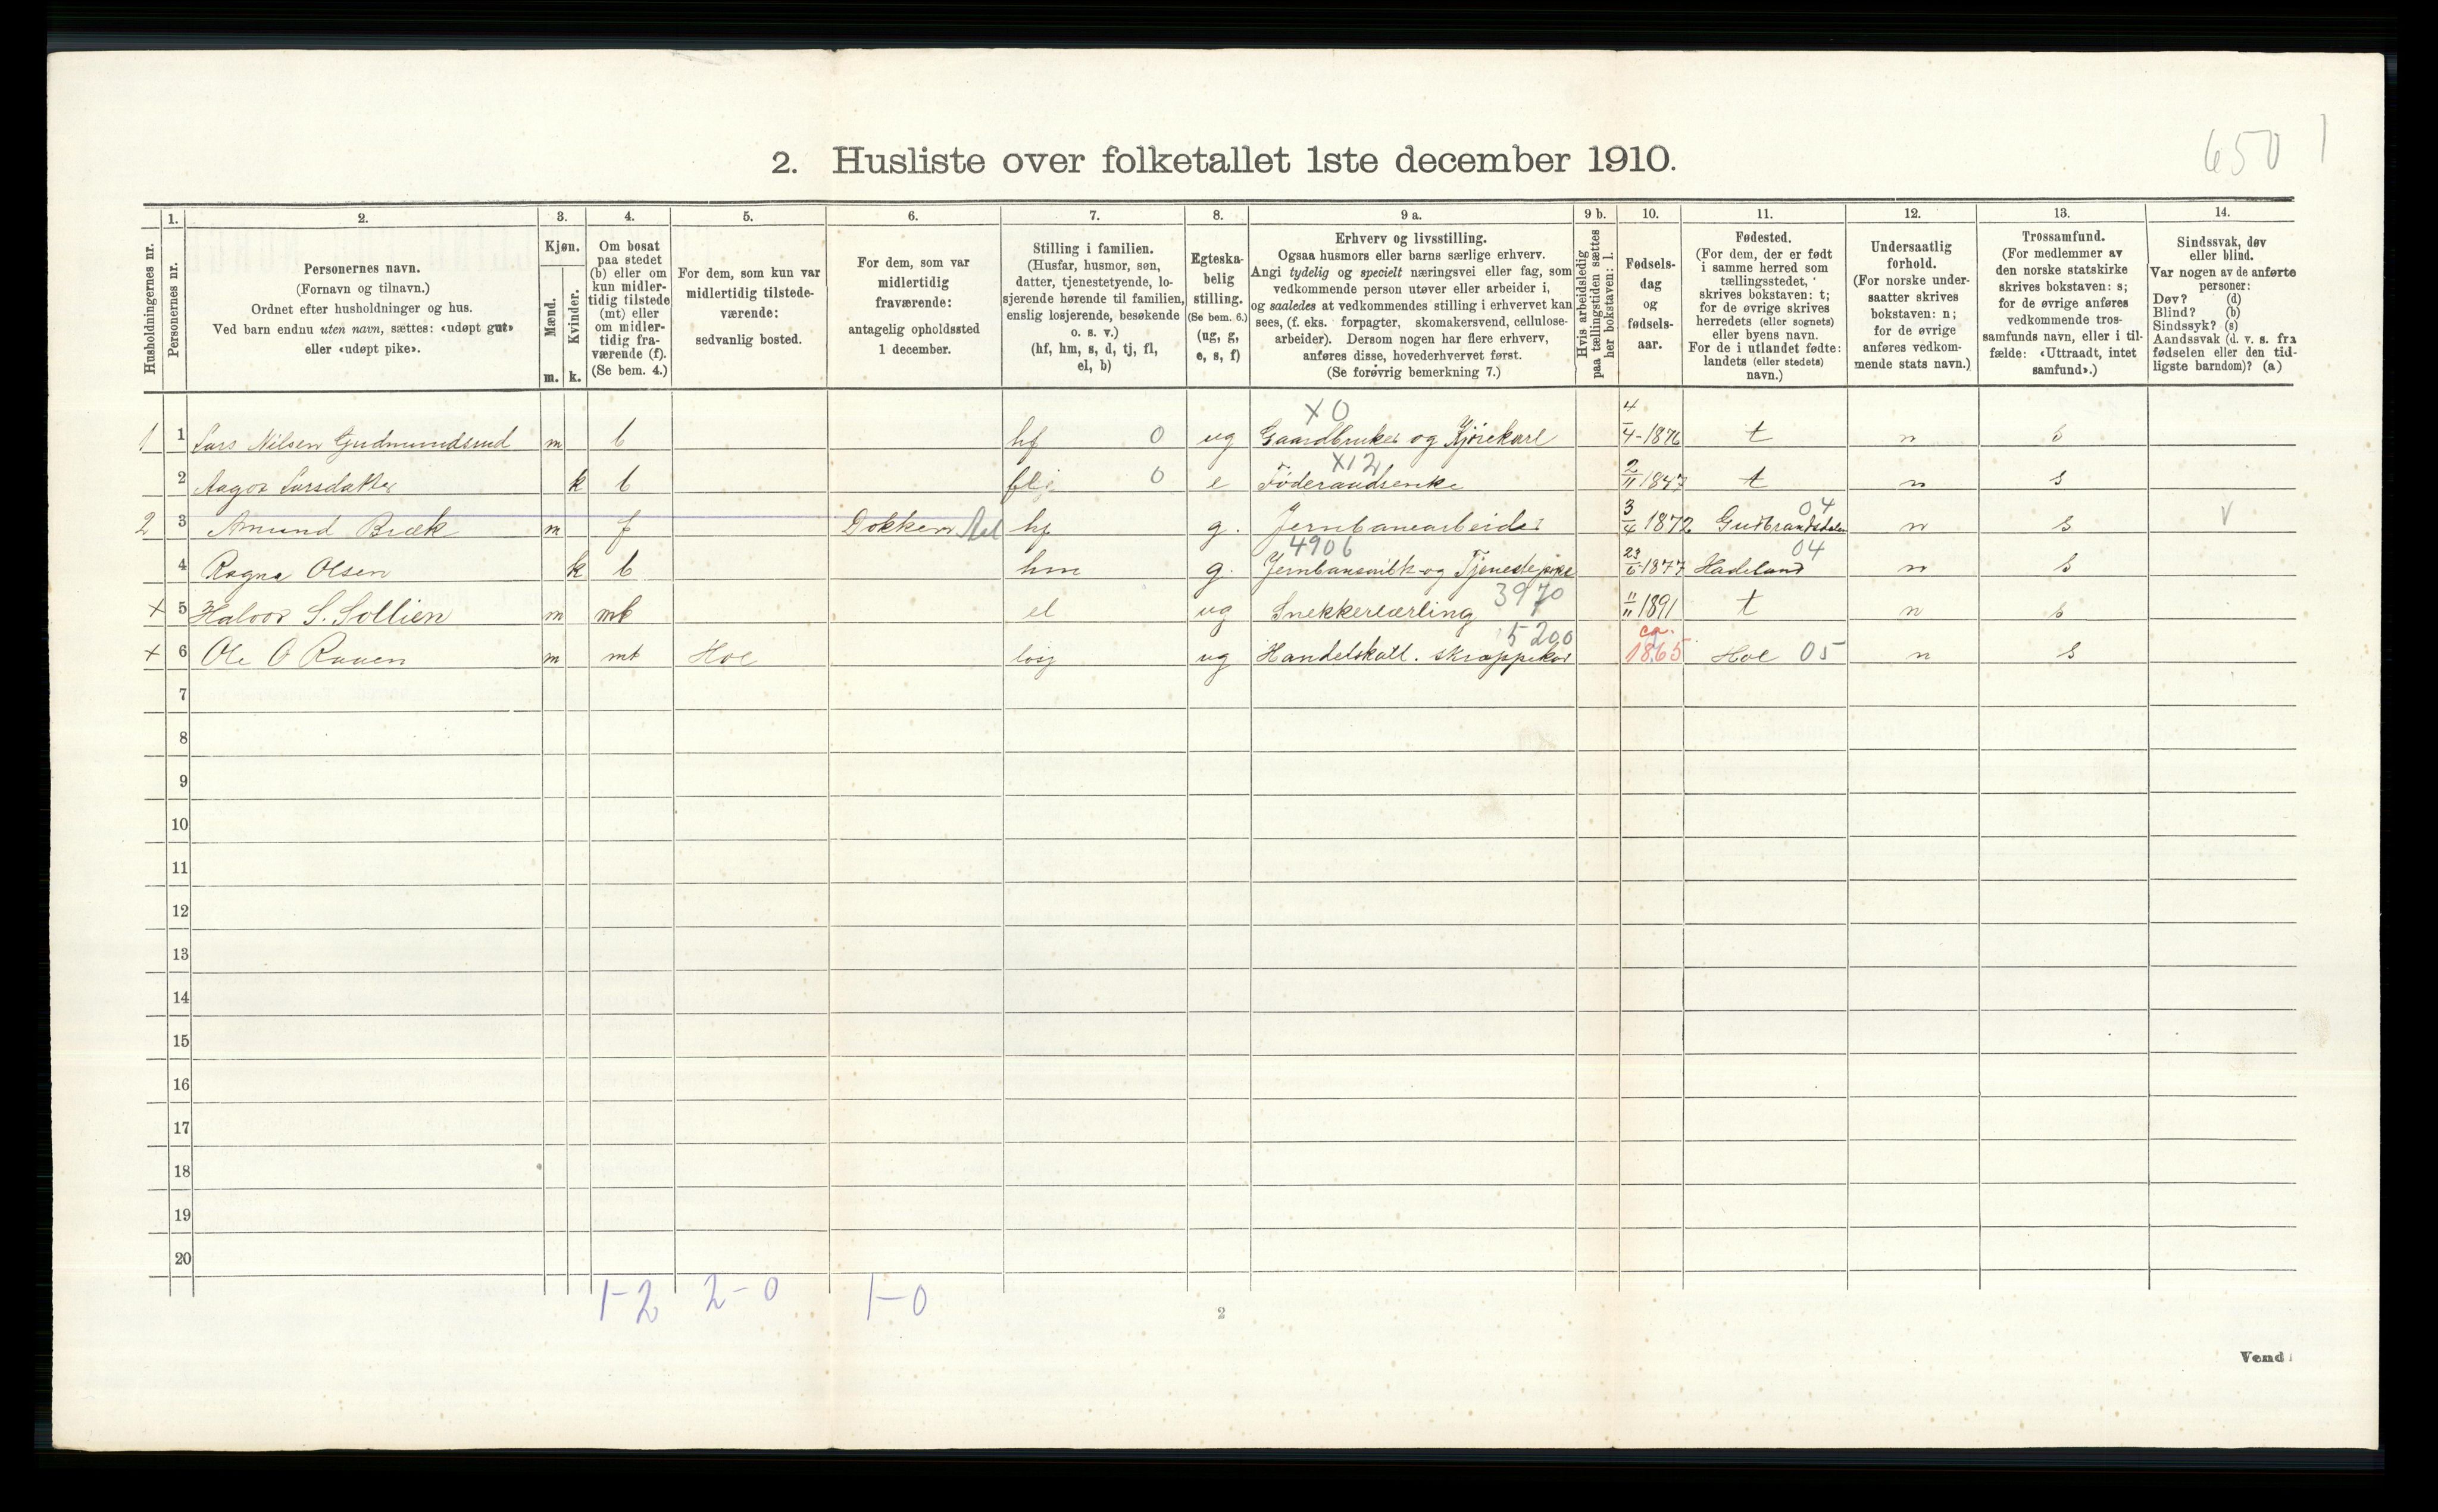 650 1
2. Husliste over folketallet 1ste december 1910.
Husholdningernes nr.
1. Personernes nr.
2. Personernes navn.
(Fornavn og tilnavn.)
Ordnet efter husholdninger og hus.
Ved barn endnu uten navn, sættes: «udøpt gut»
eller «udøpt pike».
3. Kjøn.
Mænd. m.
Kvinder. k.
4. Om bosat
paa stedet
(b) eller om
kun midler-
tidig tilstede
(mt) eller
om midler-
tidig fra-
værende (f).
(Se bem. 4.)
5. For dem, som kun var
midlertidig tilstede-
værende:
sedvanlig bosted.
6. For dem, som var
midlertidig
fraværende:
antagelig opholdssted
1 december.
7. Stilling i familien.
(Husfar, husmor, søn,
datter, tjenestetyende, lo-
sjerende hørende til familien,
enslig losjerende, besøkende
o. s. v.)
(hf, hm, s, d, tj, fl,
el, b)
8. Egteska-
belig
stilling.
(Se bem. 6.)
(ug, g,
e, s, f)
9 a. Erhverv og livsstilling.
Ogsaa husmors eller barns særlige erhverv.
Angi tydelig og specielt næringsvei eller fag, som
vedkommende person utøver eller arbeider i,
og saaledes at vedkommendes stilling i erhvervet kan
sees, (f. eks. forpagter, skomakersvend, cellulose-
arbeider). Dersom nogen har flere erhverv,
anføres disse, hovederhvervet først.
(Se forøvrig bemerkning 7.)
9 b. Hvis arbeidsledig
paa tællingstiden sættes
her bokstaven: l.
10. Fødsels-
dag
og
fødsels-
aar.
11. Fødested.
(For dem, der er født
i samme herred som
tællingsstedet,
skrives bokstaven: t;
for de øvrige skrives
herredets (eller sognets)
eller byens navn.
For de i utlandet fødte:
landets (eller stedets)
navn.)
12. Undersaatlig
forhold.
(For norske under-
saatter skrives
bokstaven: n;
for de øvrige
anføres vedkom-
mende stats navn.)
13. Trossamfund.
(For medlemmer av
den norske statskirke
skrives bokstaven: s;
for de øvrige anføres
vedkommende tros-
samfunds navn, eller i til-
fælde: «Uttraadt, intet
samfund».)
14. Sindssvak, døv
eller blind.
Var nogen av de anførte
personer:
Døv? (d)
Blind? (b)
Sindssyk? (s)
Aandssvak (d. v. s. fra
fødselen eller den tid-
ligste barndom)? (a)
X 0
1 1 Lars Nilsen Gudmundsrud m b hf 0 ug Gaardbruker og Kjørekarl 4/4-1876 t n s
X12
2 Aagot Larsdatter k b 0 e Föderaadsenke 2/11 1847 t n s
04
2 3 Amund Bræk m f Dokken Aal hf g. Jernbanearbeider 3/4 1872 Gudbrandsdalen n s V
4906 04
4 Ragna Olsen k b hm g. og Tjenestepike 23/6 1877 Hadeland n s
x 5 Halvor S. Sollien m mt el ug Snekkerlærling 3970 11/11 1891 t n s
5200 ca.
x 6 Ole O Raaen m mt Hol losj ug Handelskall. skræppekar 1865 Hol 05 n s
7
8
9
10
11
12
13
14
15
16
17
18
19
20
1-2 2-0 1-0
2
Vend!